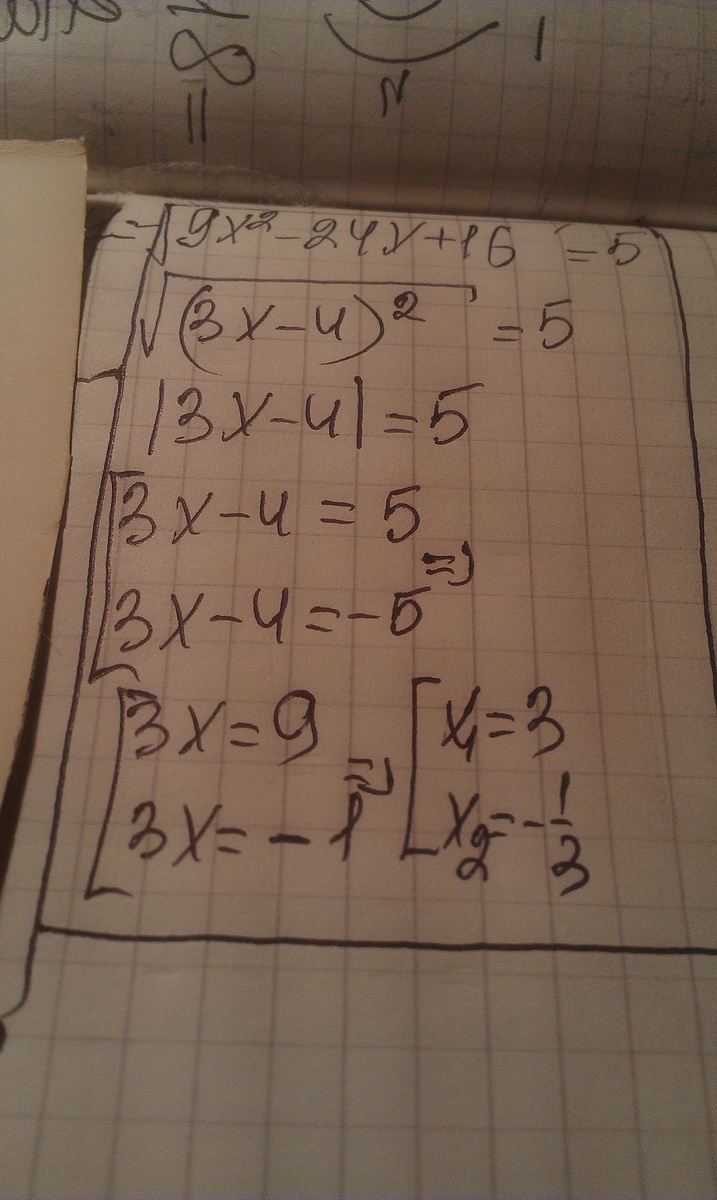 = 8
2 1
√9x² - 24x + 16 = 5
√(3x - 4)² = 5
|3x - 4| = 5
[3x - 4 = 5
=>
[3x - 4 = -5
[3x = 9 => [x₁ = 3
[3x = -1 [x₂ = -1/3